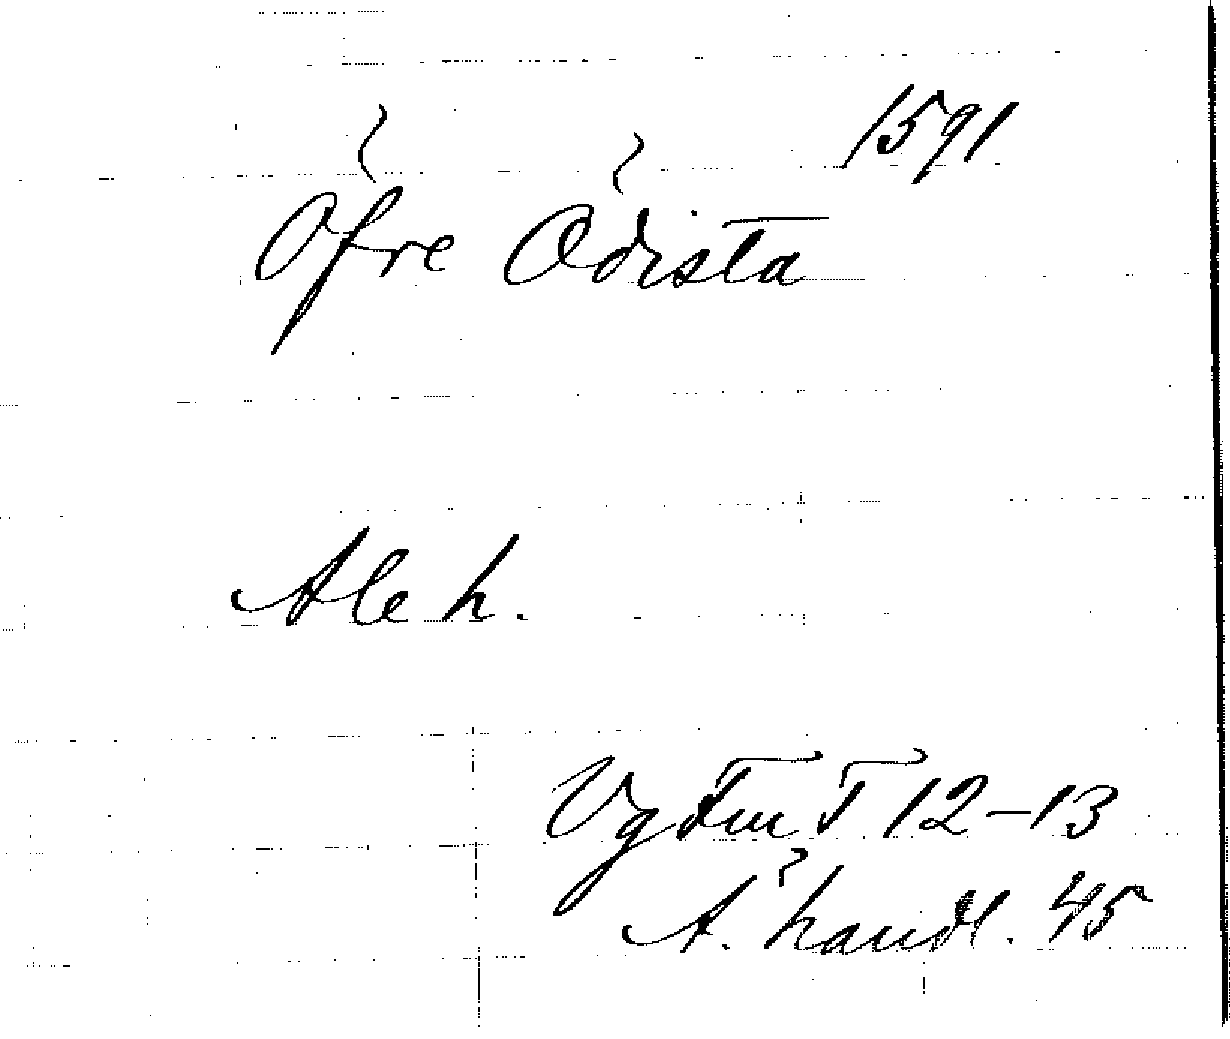 1591
Öfre Ödista
Ale h.
Vg 12-13
A. handl. 45